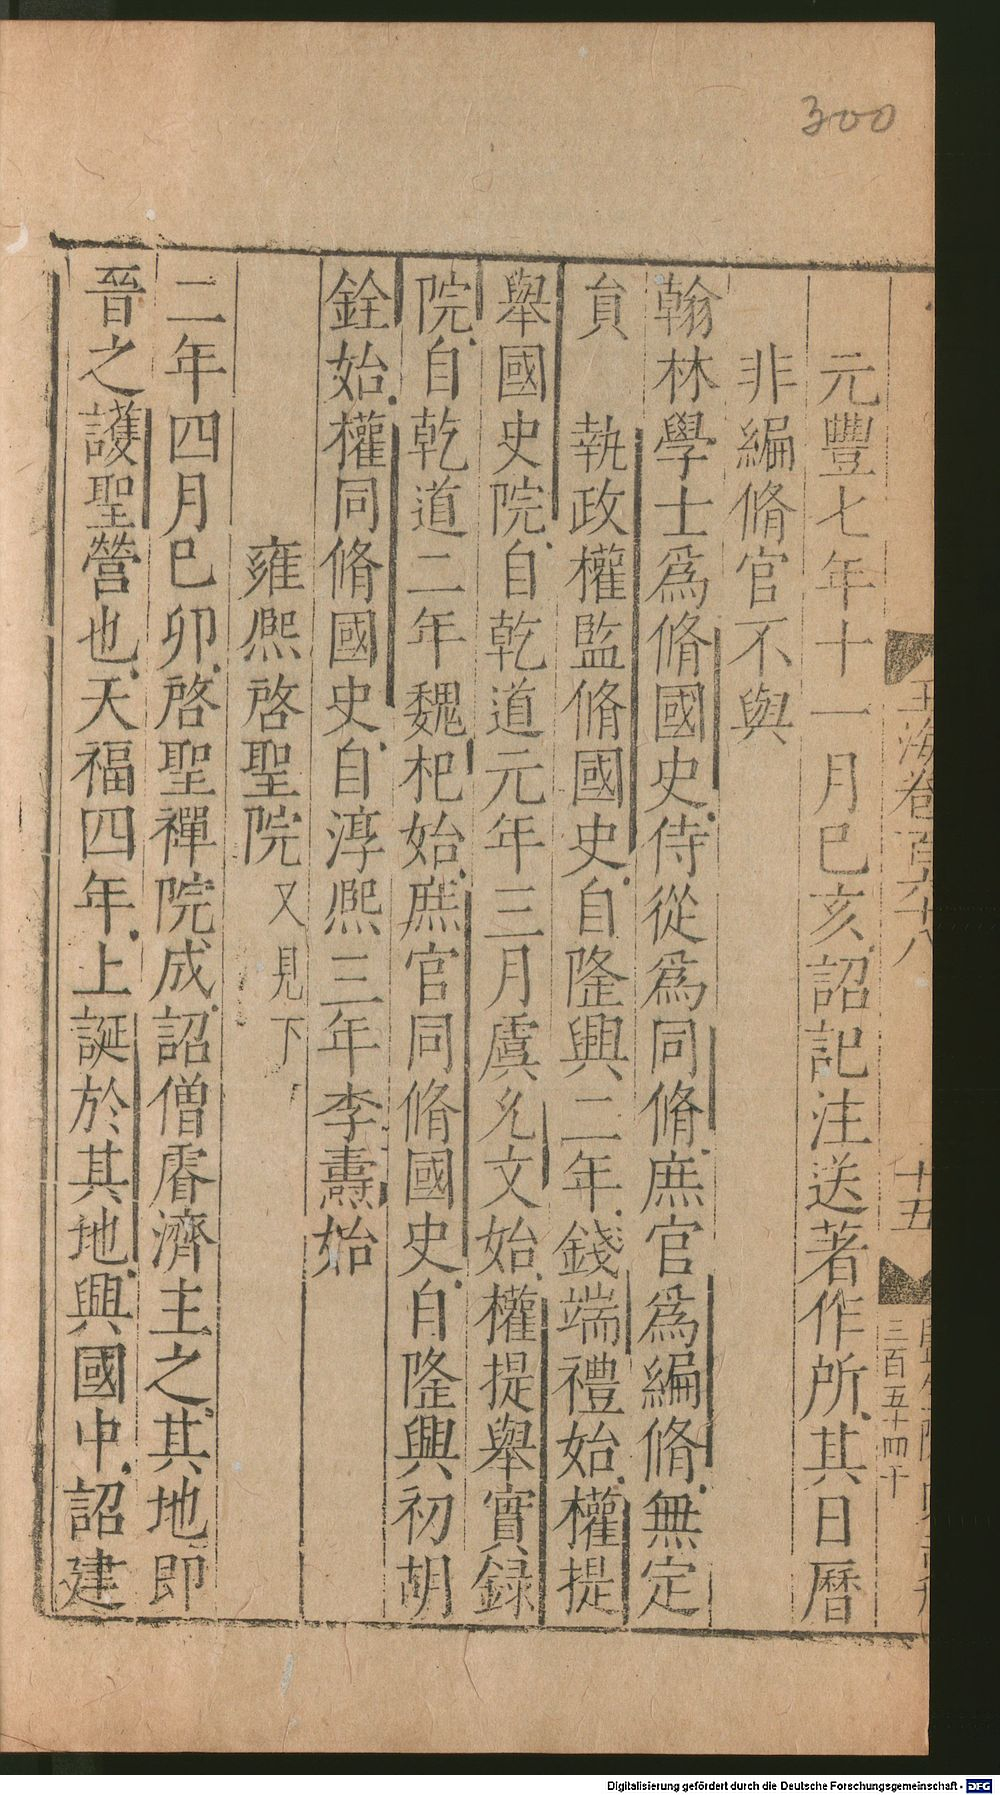 300
玉海卷百六十八
十五
三百五十四十
元豐七年十一月巳亥詔記注送著作所其日曆
非編脩官不與
翰林學士爲脩國史侍從爲同脩庶官爲編脩無定
貟 執政權監脩國史自隆興二年錢端禮始權提
舉國史院自乾道元年三月虞允文始權提舉實録
院自乾道二年魏杞始庶官同脩國史自隆興初胡
銓始權同脩國史自淳熙三年李燾始
雍熙啓聖院又見下
二年四月巳卯啓聖禪院成詔僧睿濟主之其地即
晉之護聖營也天福四年上誕於其地興國中詔建
Digitalisierung gefördert durch die Deutsche Forschungsgemeinschaft - DFG